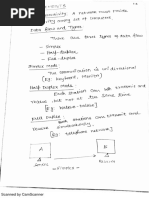 connectivity: a network must fulfill
Data flow and types
There are three types of data flow
- Simplex
- Half-duplex,
- Full-duplex
Simplex Mode
The communication is unidirectional
Half Duplex Mode
Each station can both transmit and
receive, but not at the same time.
[Eg. walkie-talkie]
Full Duplex
stations can transmit and
receive simultaneously.
[Eg. telephone network]
A
B
SENDER
Scanned by CamScanner
Scanned with CamScanner